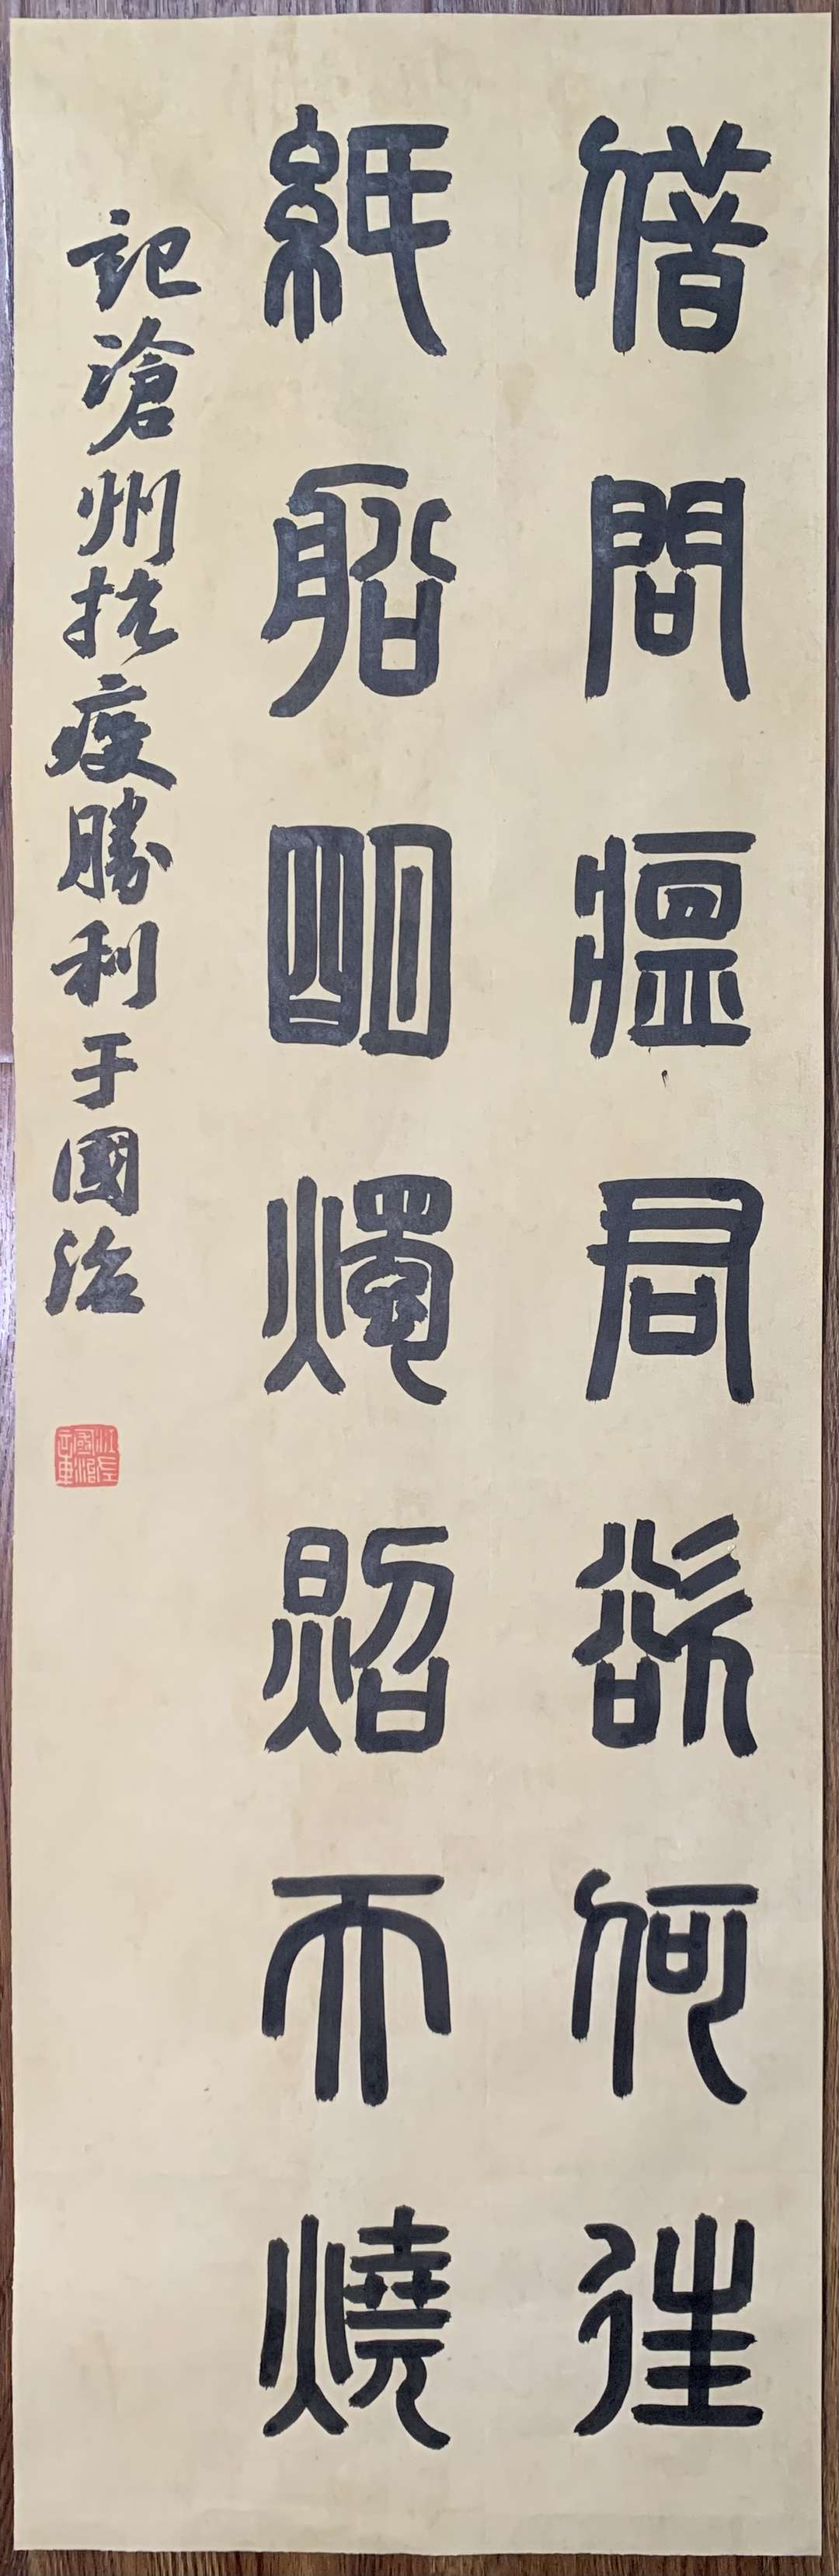 借問瘟君欲何往
紙船明燭照天燒
記滄州抗疫勝利于國治